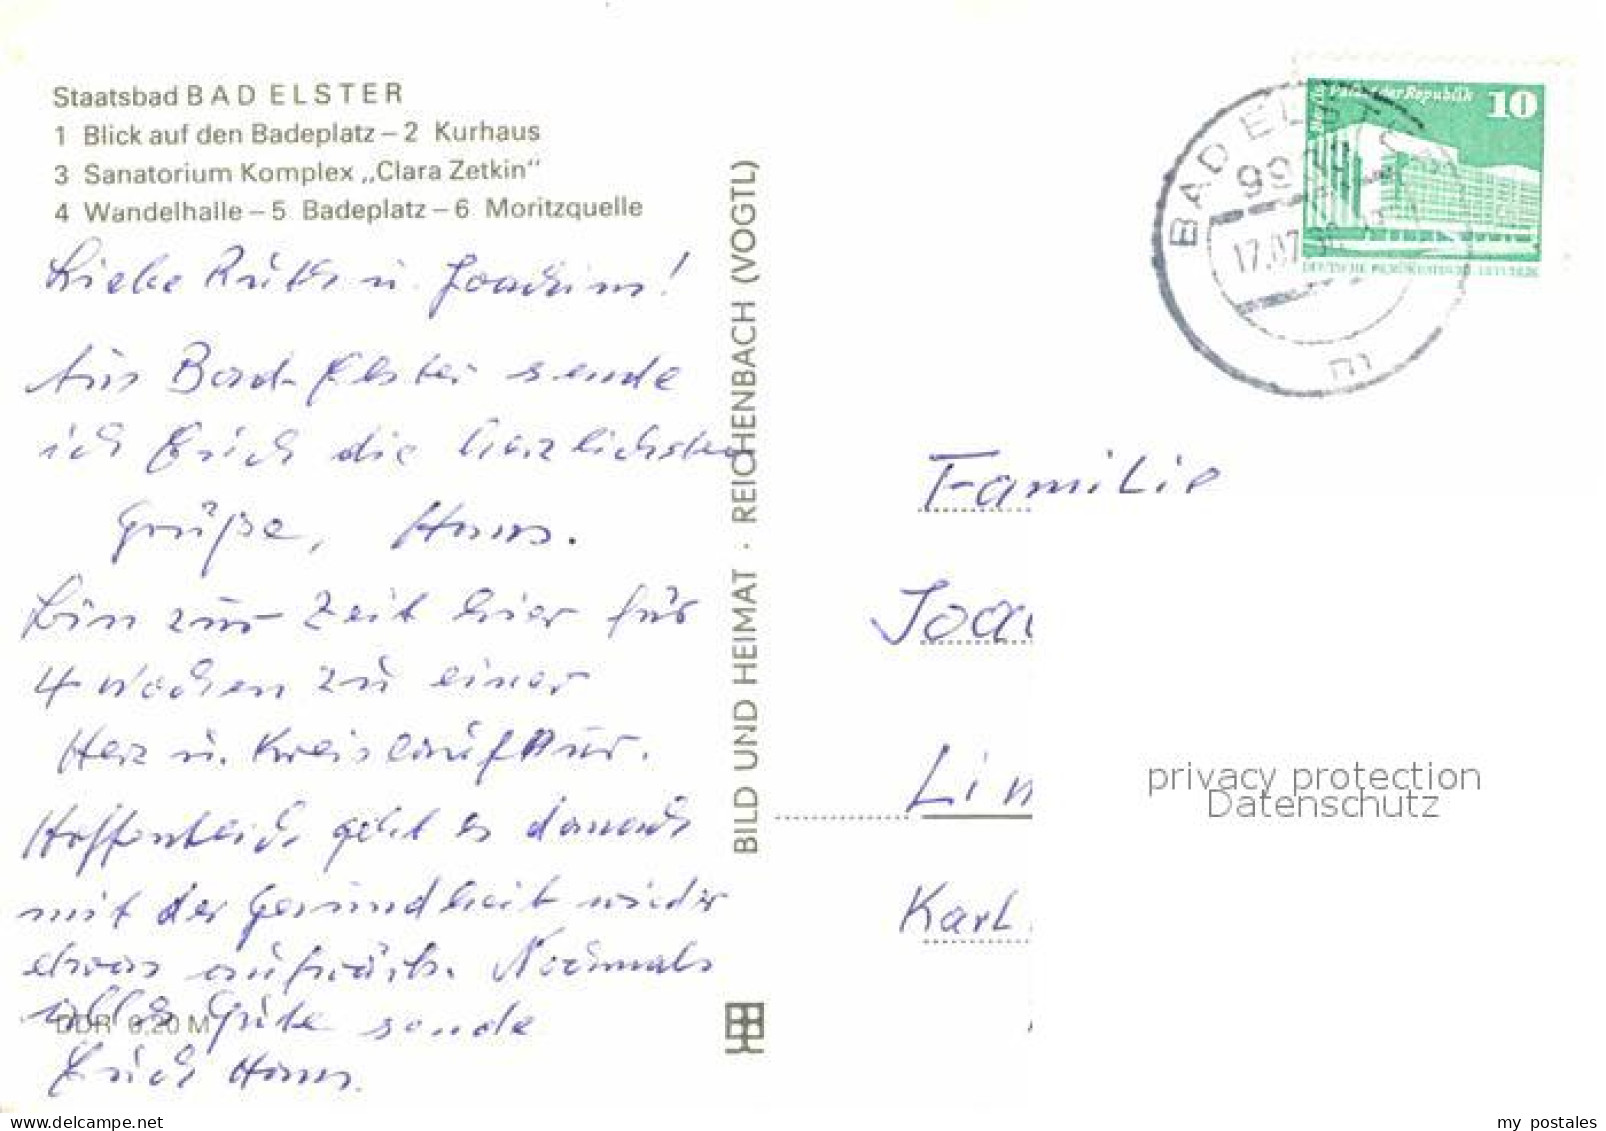 Staatsbad BAD ELSTER
1 Blick auf den Badeplatz – 2 Kurhaus
3 Sanatorium Komplex „Clara Zetkin“
4 Wandelhalle – 5 Badeplatz – 6 Moritzquelle
Liebe Ruth u. Joachim!
Aus Bad-Elster sende
ich Euch die herzlichsten
Grüße, Hans.
Bin zur Zeit hier für
4 Wochen zu einer
Herz u. Kreislaufkur.
Hoffentlich geht es danach
mit der Gesundheit wieder
etwas aufwärts. Nochmals
alles Gute sende
Euch Hans.
DDR 0,20 M
BILD UND HEIMAT · REICHENBACH (VOGTL)
Palast der Republik
10
DEUTSCHE DEMOKRATISCHE REPUBLIK
BAD ELSTER
17.07.
m
Familie
Joac
Lin
Karl
privacy protection
Datenschutz
www.delcampe.net
my_postales